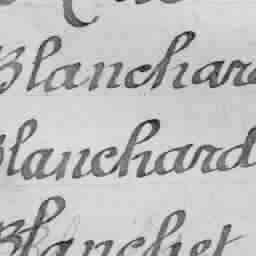 Blanchard
Blanchard
Blanchet